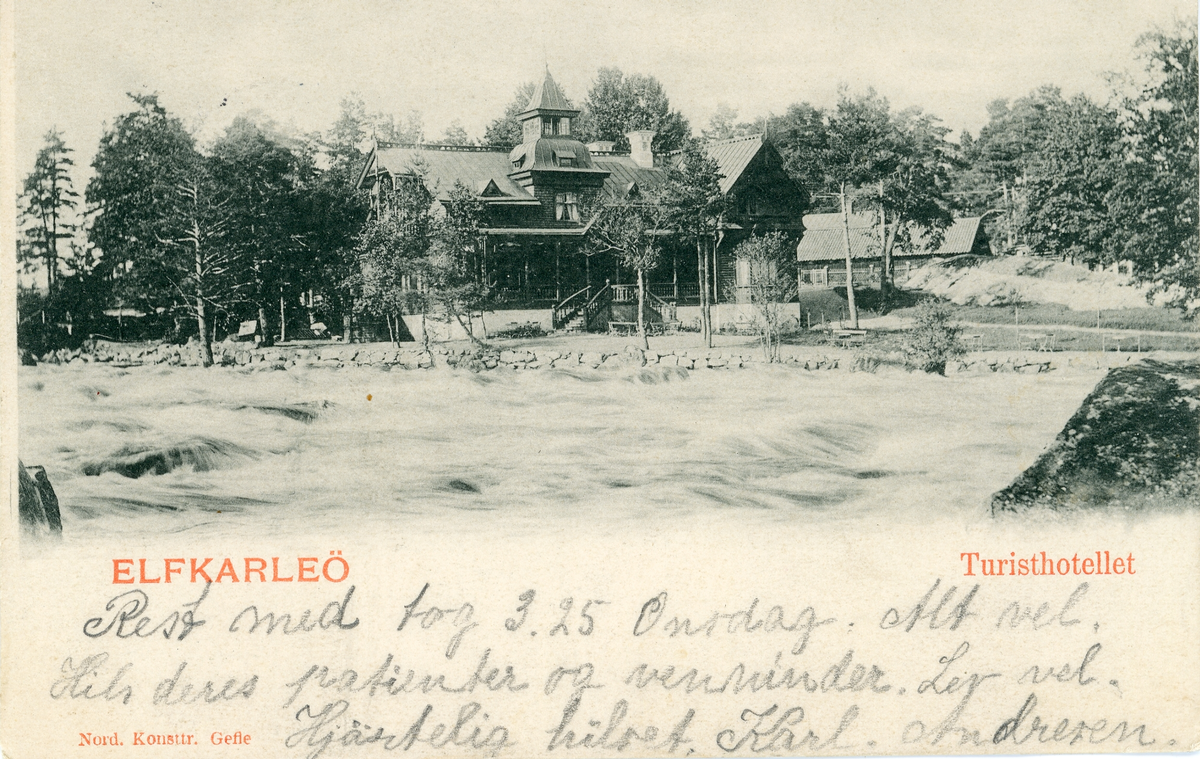 ELFKARLEÖ
Turisthotellet
Rest med tog 3.25 Onsdag. Alt vel.
Hils deres patienter og venninder. Lev vel.
Hjärtelig hilset. Karl. Andresen.
Nord. Konsttr. Gefle